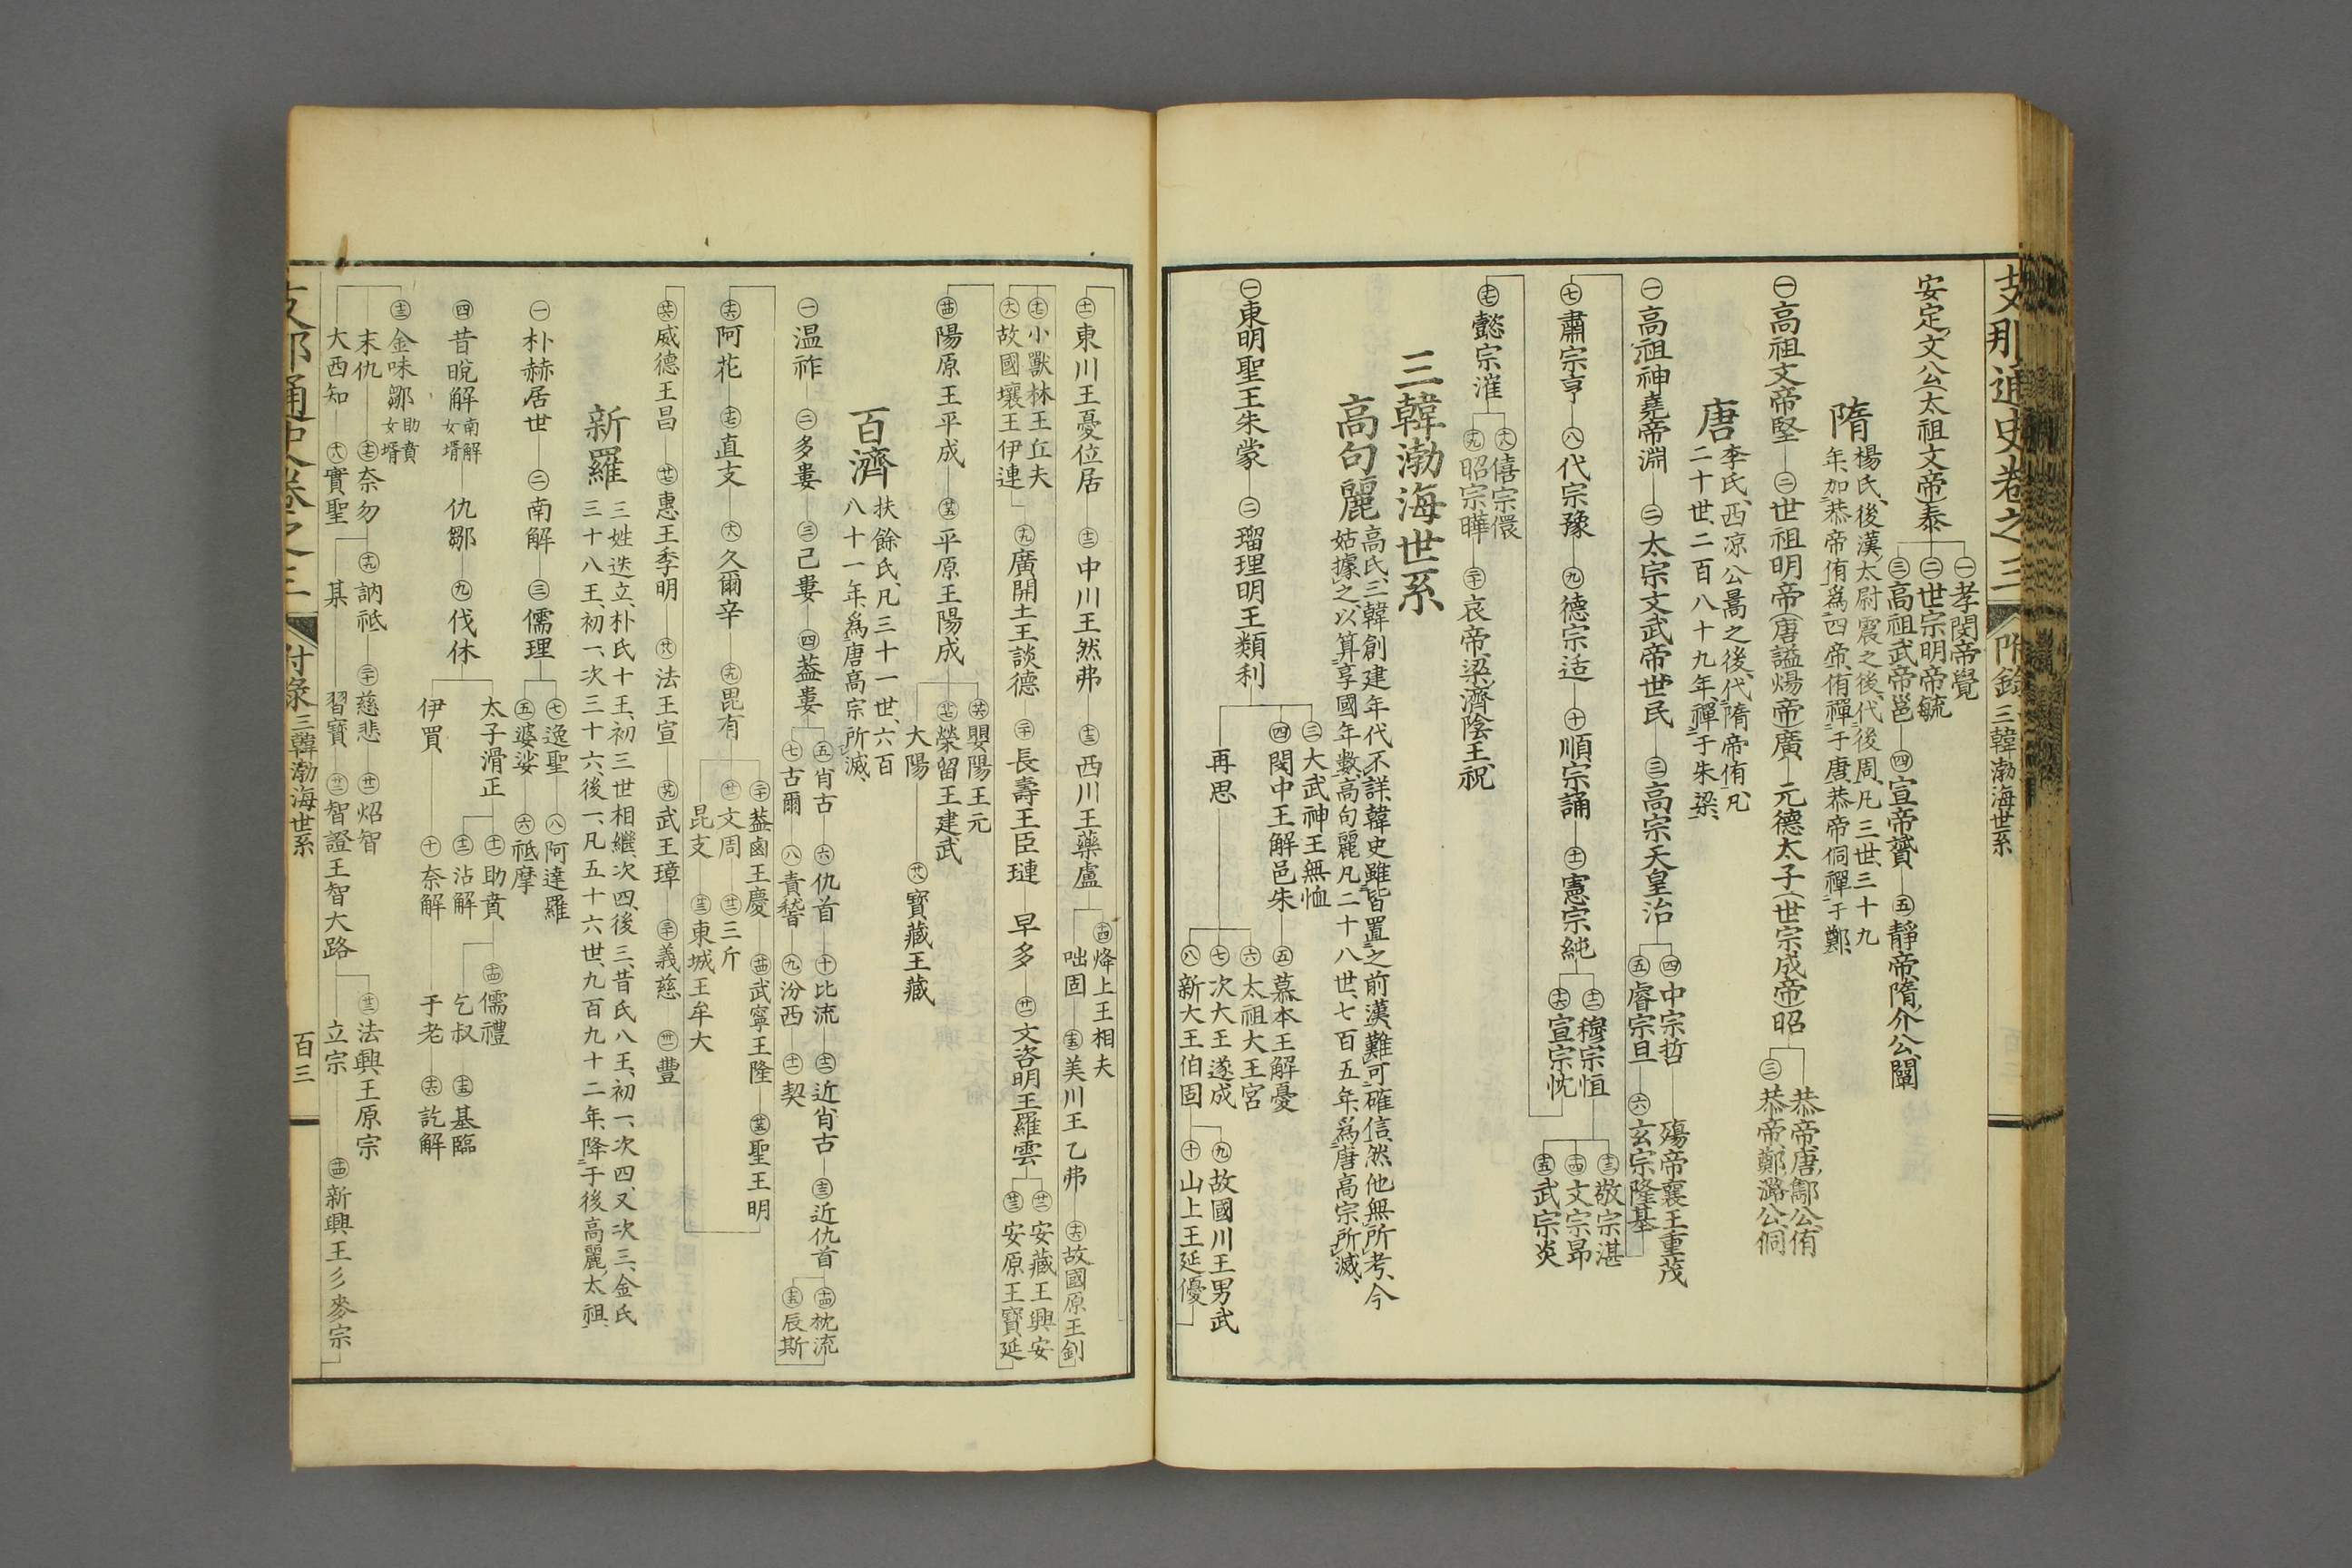 支那通史卷之三 附錄 三韓渤海世系
安定文公(太祖文帝)泰
㊀孝閔帝覺
㊁世宗明帝毓
㊂高祖武帝邕 ㊃宣帝贇 ㊄靜帝隋介公闡
隋
楊氏、後漢太尉震之後、代後周、凡三世、三十九
年、加恭帝侑爲四帝、侑禪于唐、恭帝侗禪于鄭、
㊀高祖文帝堅 ㊁世祖明帝(唐謚煬帝)廣 元德太子(世宗成帝)昭
恭帝唐酅公侑
㊂恭帝鄭潞公侗
唐
李氏、西凉公暠之後、代隋帝侑、凡
二十世、二百八十九年、禪于朱梁、
㊀高祖神堯帝淵 ㊁太宗文武帝世民 ㊂高宗天皇治
㊃中宗哲 殤帝襄王重茂
㊄睿宗旦 ㊅玄宗隆基
㊆肅宗亨 ㊇代宗豫 ㊈德宗适 ㊉順宗誦 ⟨十一⟩憲宗純
⟨十二⟩穆宗恒
⟨十六⟩宣宗忱
⟨十三⟩敬宗湛
⟨十四⟩文宗昂
⟨十五⟩武宗炎
⟨十七⟩懿宗漼
⟨十八⟩僖宗儇
⟨十九⟩昭宗曄 ⟨二十⟩哀帝梁濟陰王祝
三韓渤海世系
高句麗
高氏、三韓創建年代不詳、韓史雖皆置之前漢、難可確信、然他無所考、今
姑據之、以算享國年數、高句麗凡二十八世、七百五年、爲唐高宗所滅、
㊀東明聖王朱蒙 ㊁瑠理明王類利
㊂大武神王無恤
㊃閔中王解邑朱 ㊄慕本王解憂
再思
㊅太祖大王宮
㊆次大王遂成
㊇新大王伯固
㊈故國川王男武
㊉山上王延優
⟨十一⟩東川王憂位居 ⟨十二⟩中川王然弗 ⟨十三⟩西川王藥盧
⟨十四⟩烽上王相夫
咄固 ⟨十五⟩美川王乙弗 ⟨十六⟩故國原王釗
⟨十七⟩小獸林王丘夫
⟨十八⟩故國壤王伊連 ⟨十九⟩廣開土王談德 ⟨二十⟩長壽王臣璉 早多 ⟨廿一⟩文咨明王羅雲
⟨廿二⟩安藏王興安
⟨廿三⟩安原王寶延
⟨廿四⟩陽原王平成 ⟨廿五⟩平原王陽成
⟨廿六⟩嬰陽王元
⟨廿七⟩榮留王建武
大陽 ⟨廿八⟩寶藏王藏
百濟
扶餘氏、凡三十一世、六百
八十一年、爲唐高宗所滅、
㊀温祚 ㊁多婁 ㊂己婁 ㊃葢婁
㊄肖古 ㊅仇首 ㊉比流 ⟨十二⟩近肖古 ⟨十三⟩近仇首
㊆古爾 ㊇責稽 ㊈汾西 ⟨十一⟩契
⟨十四⟩枕流
⟨十五⟩辰斯
⟨十六⟩阿花 ⟨十七⟩直支 ⟨十八⟩久爾辛 ⟨十九⟩毘有
⟨二十⟩葢鹵王慶
⟨廿一⟩文周 ⟨廿二⟩三斤
昆支 ⟨廿三⟩東城王牟大
⟨廿四⟩武寧王隆 ⟨廿五⟩聖王明
⟨廿六⟩威德王昌 ⟨廿七⟩惠王季明 ⟨廿八⟩法王宣 ⟨廿九⟩武王璋 ⟨三十⟩義慈 ⟨卅一⟩豐
新羅
三姓迭立、朴氏十王、初三世相繼、次四、後三、昔氏八王、初一、次四、又次三、金氏
三十八王、初一、次三十六、後一、凡五十六世、九百九十二年、降于後高麗太祖、
㊀朴赫居世 ㊁南解 ㊂儒理
㊆逸聖 ㊇阿達羅
㊄婆娑 ㊅祗摩
㊃昔脫解 南解女壻 仇鄒 ㊈伐休
太子滑正
⟨十一⟩助賁
⟨十二⟩沾解
⟨十四⟩儒禮
乞叔 ⟨十五⟩基臨
伊買 ㊉奈解 于老 ⟨十六⟩訖解
⟨十三⟩金味鄒 助賁女壻
末仇 ⟨十七⟩奈勿
⟨十九⟩訥祗 ⟨二十⟩慈悲 ⟨廿一⟩炤智
大西知 ⟨十八⟩實聖
某 習寶 ⟨廿二⟩智證王智大路
⟨廿三⟩法興王原宗
立宗 ⟨廿四⟩新興王彡麥宗
支那通史卷之三 付錄 三韓渤海世系 百三